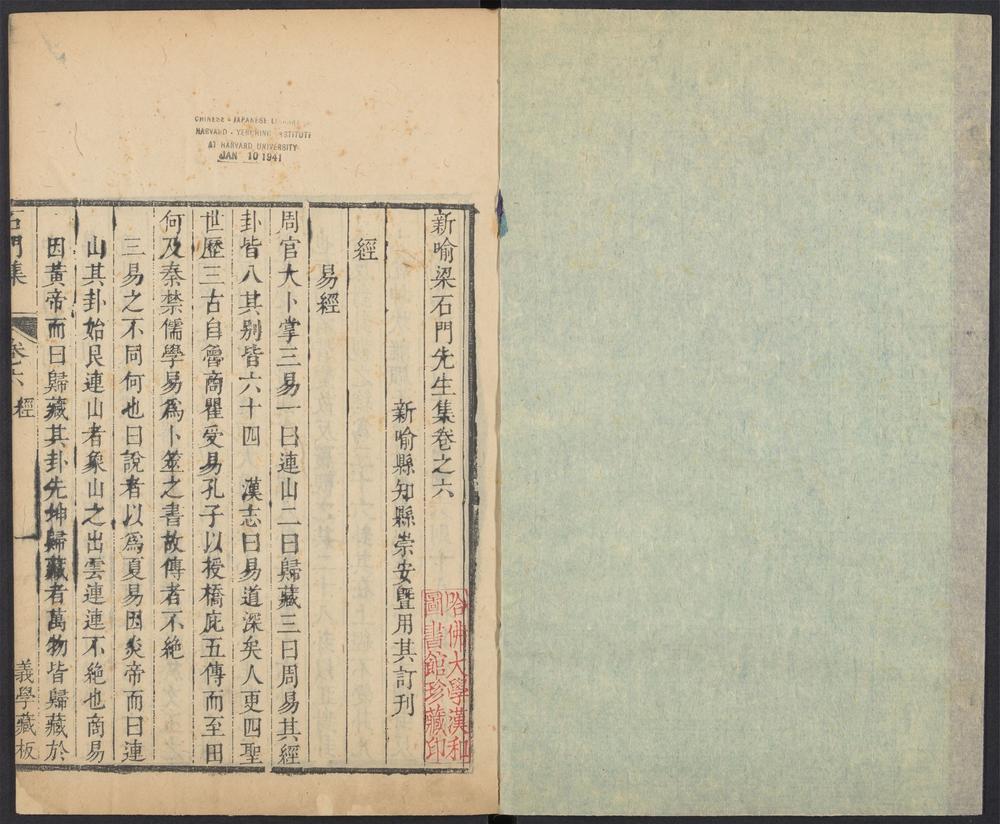 CHINESE - JAPANESE
HARVARD - YENCHING INSTITUTE
AT HARVARD UNIVERSITY
JAN 10 1941
新喻梁石門先生集卷之六
新喻縣知縣崇安暨用其訂刊
經
易經
周官大卜掌三易一曰連山二曰歸藏三曰周易其經
卦皆八其別皆六十四　漢志曰易道深矣人更四聖
世歷三古自魯商瞿受易孔子以授橋庇五傳而至田
何及秦禁儒學易爲卜筮之書故傳者不絶
三易之不同何也曰說者以爲夏易因炎帝而曰連
山其卦始艮連山者象山之出雲連連不絶也商易
因黃帝而曰歸藏其卦先坤歸藏者萬物皆歸藏於
石門集
卷六
經
一
義學藏板
哈佛大學漢和
圖書館珍藏印